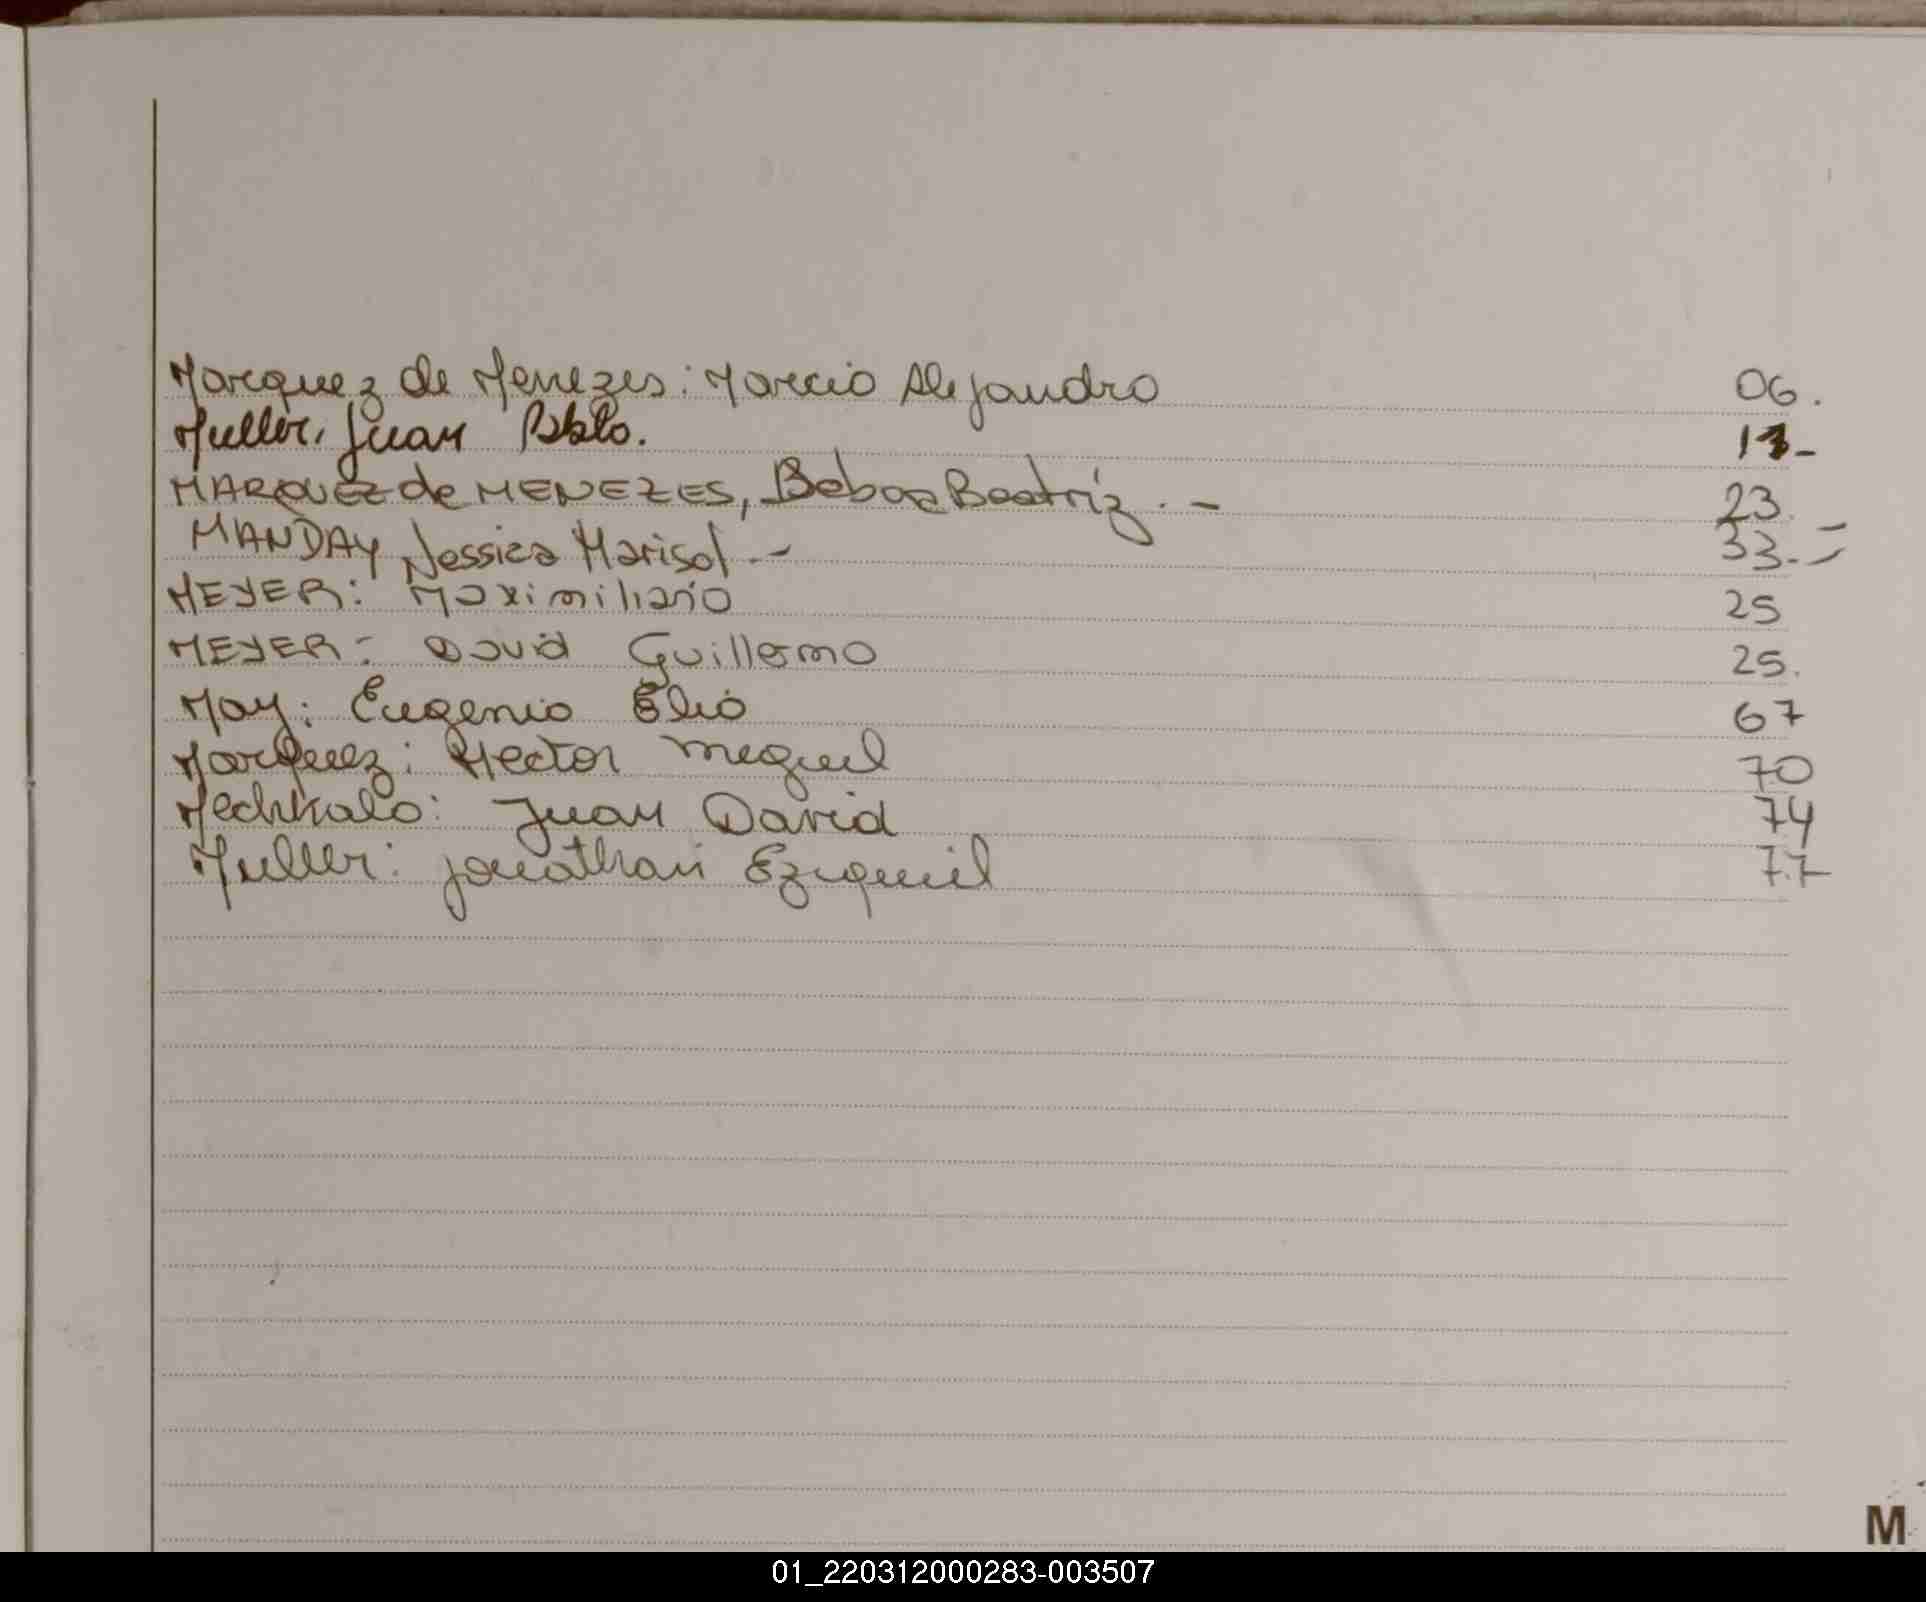 Marquez de Menezes: Marcio Alejandro 06.
Muller, Juan Pablo. -
MARQUEZ de MENEZES, Beatriz. - 23.
MANDAY Jessica Marisol - 33. -
MEYER: Maximiliano 25
MEYER: David Guillermo 25.
May: Eugenio Elio 67
Marquez: Hector Miguel 70
Mechkalo: Juan David 74
Muller: Jonathan Ezequiel 77
M
01_220312000283-003507